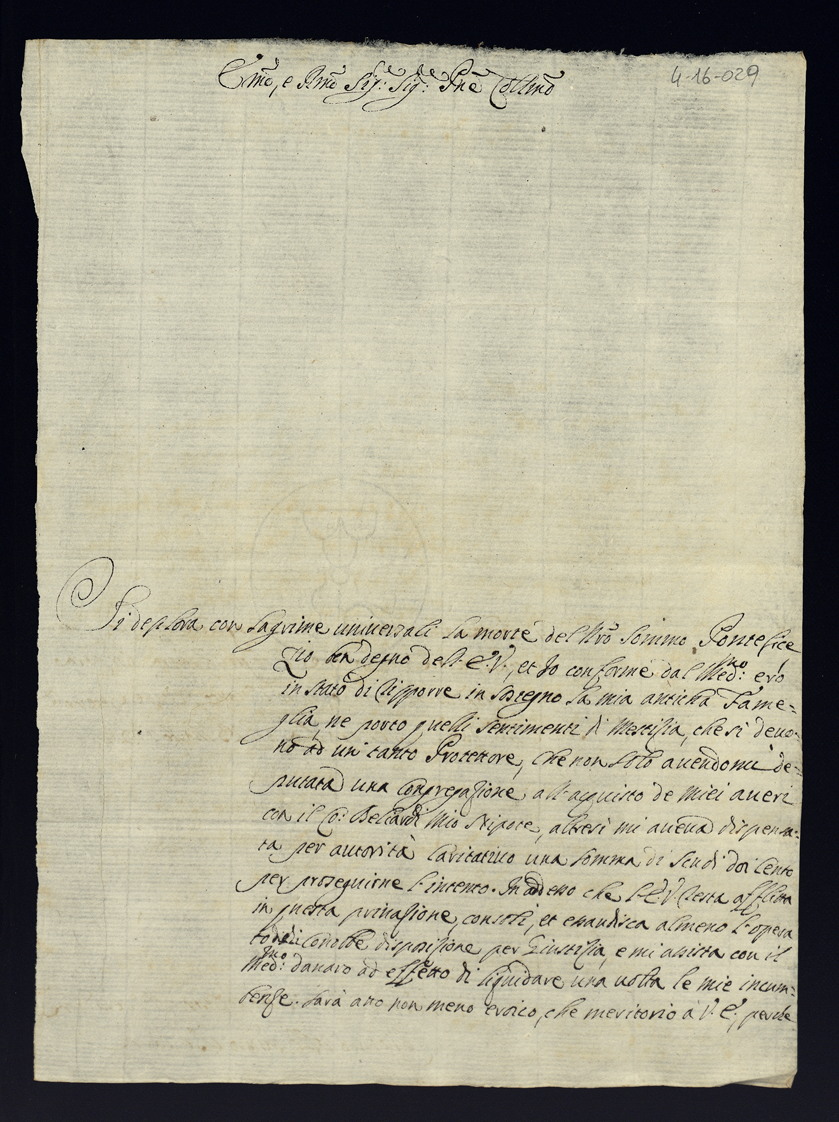 4-16-029
Em̃o, e Rm̃o Sig.r Sig.r Pñe Collm̃o
Si deplora con lagrime universali la morte del Nrõ Sommo Pontefice
Zio ben degno dell'E. V., et Io conforme dal Med.mo ero
in stato di disporre in sostegno la mia anticha Fame=
glia, ne porto quelli sentimenti di Mestizia, che si devo=
no ad un tanto Protettore, che non solo avendomi de=
putata una Congregazione all'acquisto de miei averi
con il Co: Beliardi Mio Nipote, altresi mi aveva dispensa=
ta per autorità Caritativo una somma di Scudi doi Cento
per proseguirne l'intento. In adeno che l'E. V. resta afflitta
in questa privazione, consoli, et esaudisca almeno l'opera
to di condotte disposizione per Giustizia, e mi assista con il
Med.mo danaro ad effetto di liquidare una volta le mie incum=
benze. Sarà atto non meno eroico, che meritorio a V. E., perche